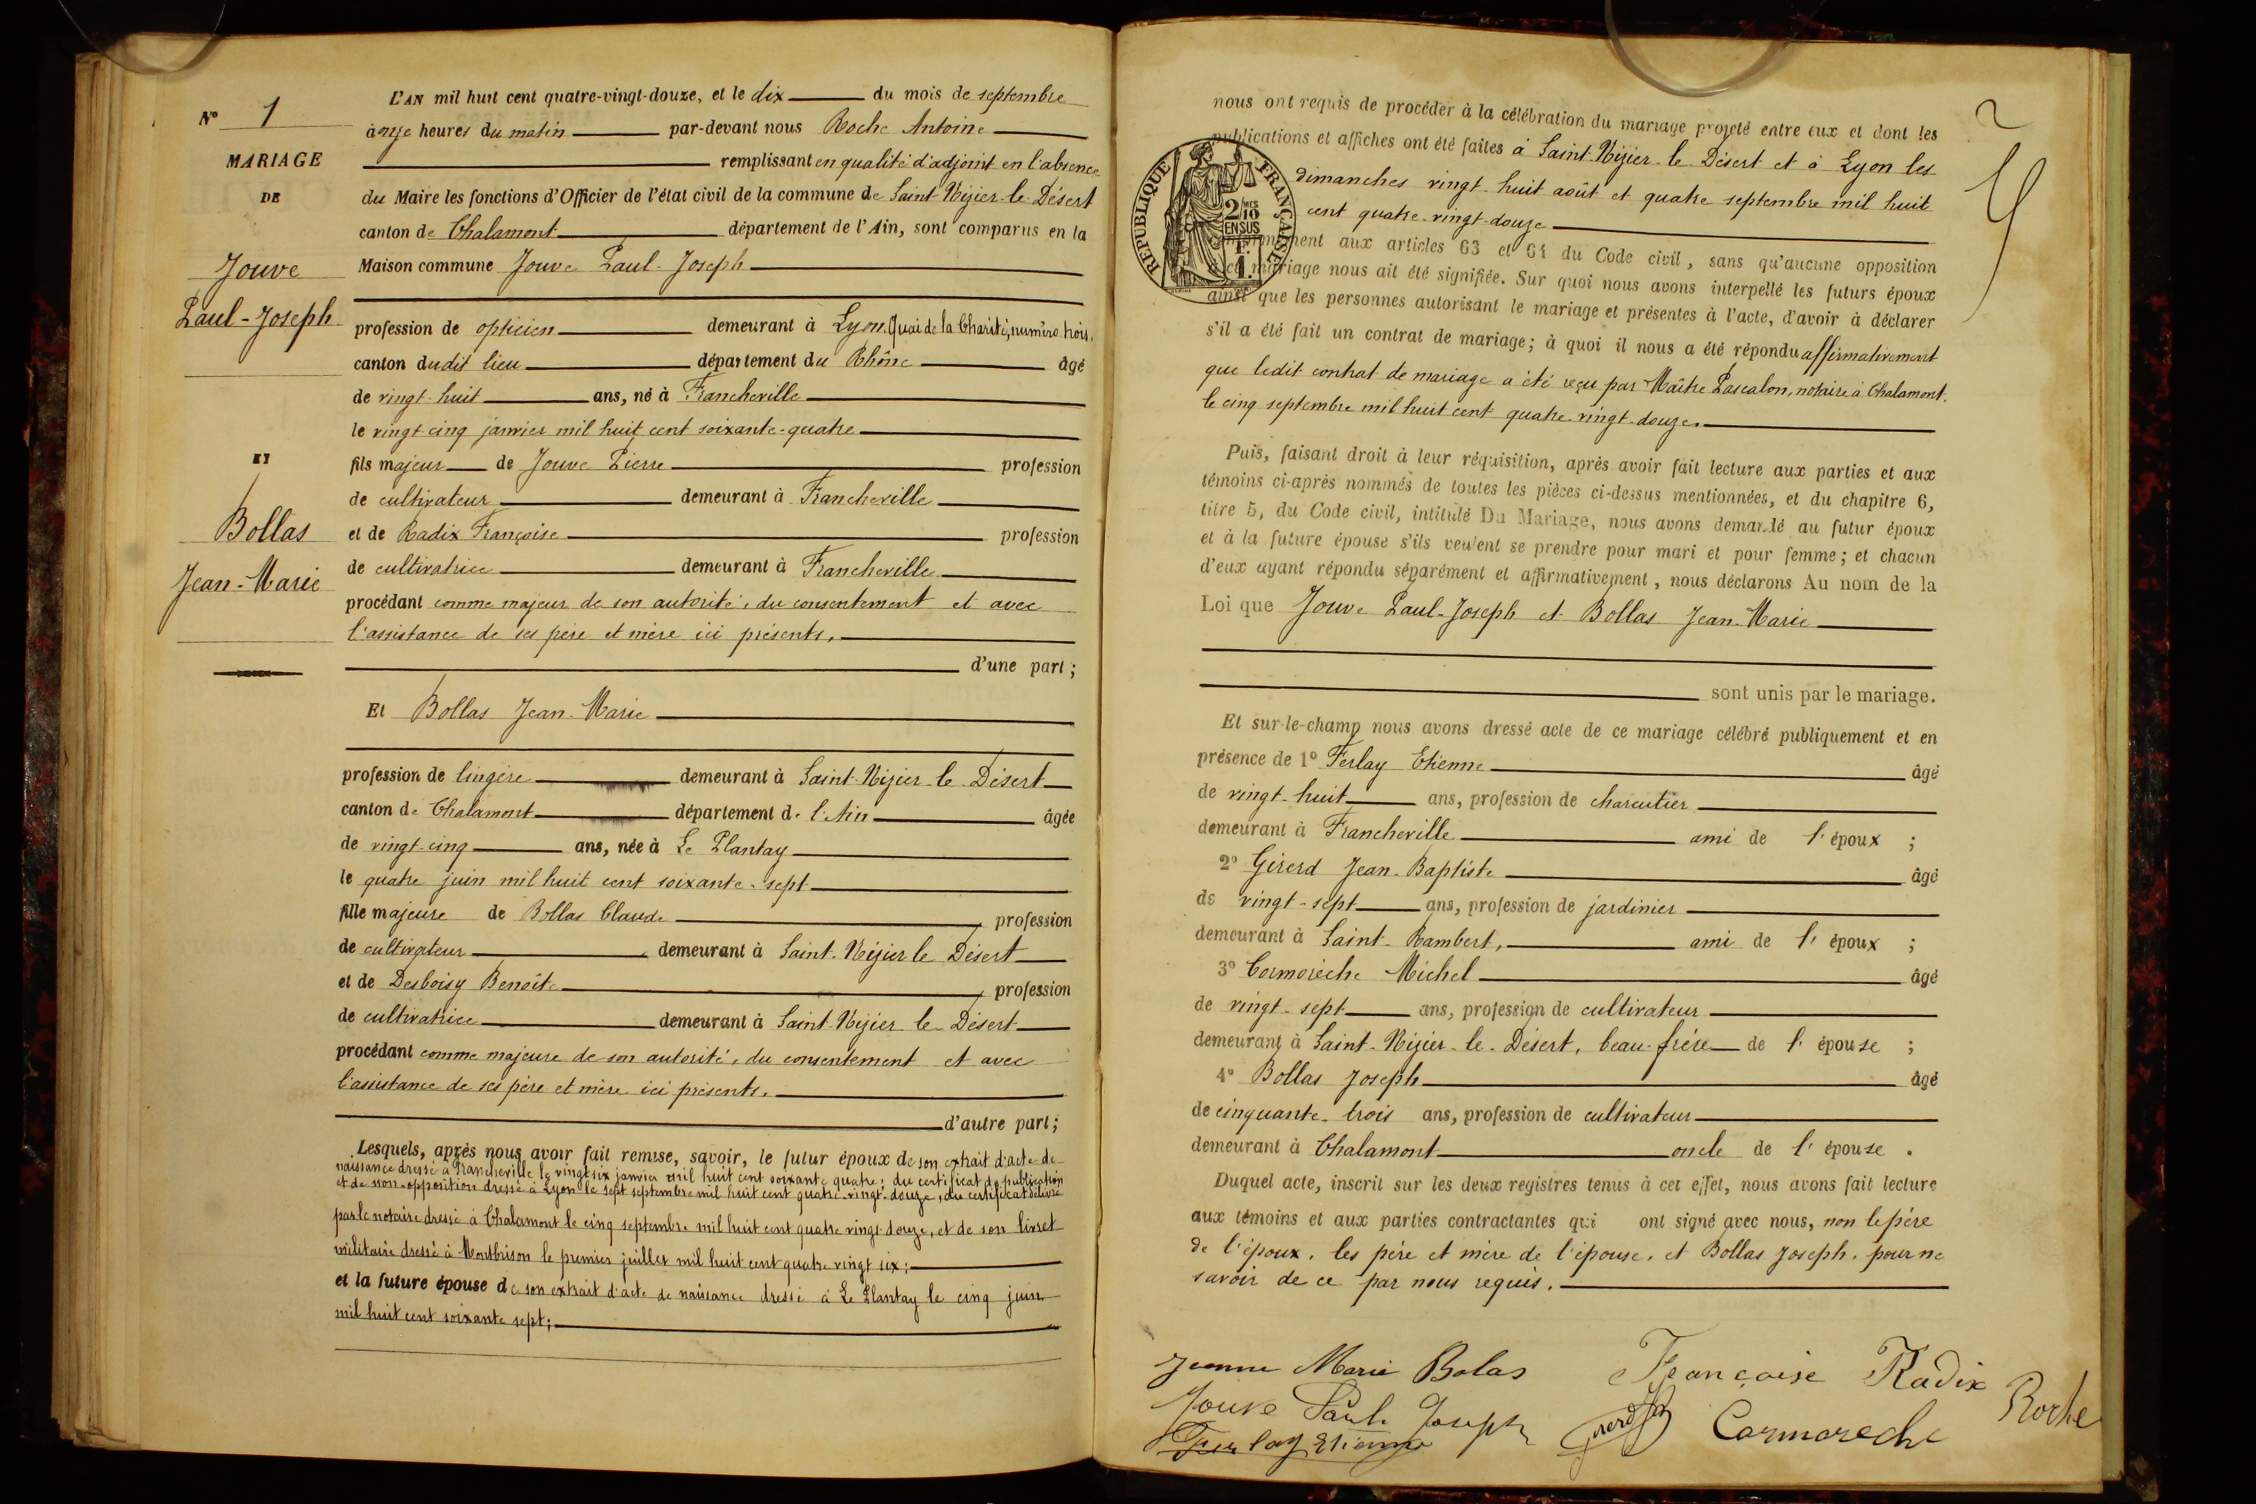 N° 1
MARIAGE
DE
Jouve
Paul-Joseph
ET
Bollas
Jean-Marie
L'AN mil huit cent quatre-vingt-douze, et le dix du mois de septembre
à onze heures du matin par-devant nous Roche Antoine
remplissant en qualité d'adjoint en l'absence
du Maire les fonctions d'Officier de l'état civil de la commune de Saint-Nizier-le-Désert
canton de Chalamont département de l'Ain, sont comparus en la
Maison commune Jouve Paul-Joseph
profession de opticien demeurant à Lyon, Quai de la Charité, numéro trois,
canton dudit lieu département du Rhône âgé
de vingt-huit ans, né à Francheville
le vingt-cinq janvier mil huit cent soixante-quatre
fils majeur de Jouve Pierre profession
de cultivateur demeurant à Francheville
et de Radix Françoise profession
de cultivatrice demeurant à Francheville
procédant comme majeur de son autorité, du consentement et avec
l'assistance de ses père et mère ici présents,
d'une part;
Et Bollas Jean-Marie
profession de lingère demeurant à Saint-Nizier-le-Désert
canton de Chalamont département de l'Ain âgée
de vingt-cinq ans, née à Le Plantay
le quatre juin mil huit cent soixante-sept
fille majeure de Bollas Claude profession
de cultivateur demeurant à Saint-Nizier le Désert
et de Desboisy Benoîte profession
de cultivatrice demeurant à Saint-Nizier le Désert
procédant comme majeure de son autorité, du consentement et avec
l'assistance de ses père et mère ici présents.
d'autre part;
Lesquels, après nous avoir fait remise, savoir, le futur époux de son extrait d'acte de
naissance dressé à Francheville le vingt six janvier mil huit cent soixante quatre; du certificat de publication
et de non-opposition dressé à Lyon le sept septembre mil huit cent quatre-vingt-douze, du certificat délivré
par le notaire dressé à Chalamont le cinq septembre mil huit cent quatre vingt-douze, et de son livret
militaire dressé à Montbrison le premier juillet mil huit cent quatre vingt six;
et la future épouse de son extrait d'acte de naissance dressé à Le Plantay le cinq juin
mil huit cent soixante sept;
nous ont requis de procéder à la célébration du mariage projeté entre eux et dont les
publications et affiches ont été faites à Saint-Nizier-le-Désert et à Lyon les
dimanches vingt-huit août et quatre septembre mil huit
cent quatre-vingt-douze
RÉPUBLIQUE FRANÇAISE
2/10 MES
EN SUS
1 F.
conformément aux articles 63 et 64 du Code civil, sans qu'aucune opposition
à ce mariage nous ait été signifiée. Sur quoi nous avons interpellé les futurs époux
ainsi que les personnes autorisant le mariage et présentes à l'acte, d'avoir à déclarer
s'il a été fait un contrat de mariage; à quoi il nous a été répondu affirmativement
que ledit contrat de mariage a été reçu par Maître Pascalon, notaire à Chalamont,
le cinq septembre mil huit cent quatre-vingt-douze.
Puis, faisant droit à leur réquisition, après avoir fait lecture aux parties et aux
témoins ci-après nommés de toutes les pièces ci-dessus mentionnées, et du chapitre 6,
titre 5, du Code civil, intitulé Du Mariage, nous avons demandé au futur époux
et à la future épouse s'ils veulent se prendre pour mari et pour femme; et chacun
d'eux ayant répondu séparément et affirmativement, nous déclarons Au nom de la
Loi que Jouve Paul-Joseph et Bollas Jean-Marie
sont unis par le mariage.
Et sur-le-champ nous avons dressé acte de ce mariage célébré publiquement et en
présence de 1° Ferlay Etienne âgé
de vingt-huit ans, profession de charcutier
demeurant à Francheville ami de l'époux ;
2° Gérerd Jean-Baptiste âgé
de vingt-sept ans, profession de jardinier
demeurant à Saint-Rambert, ami de l'époux ;
3° Cormorèche Michel âgé
de vingt-sept ans, profession de cultivateur
demeurant à Saint-Nizier-le-Désert, beau-frère de l'épouse ;
4° Bollas Joseph âgé
de cinquante-trois ans, profession de cultivateur
demeurant à Chalamont oncle de l'épouse .
Duquel acte, inscrit sur les deux registres tenus à cet effet, nous avons fait lecture
aux témoins et aux parties contractantes qui ont signé avec nous, non le père
de l'époux, les père et mère de l'épouse, et Bollas Joseph, pour ne
savoir de ce par nous requis.
Jeanne Marie Bolas Françoise Radix
Jouve Paul Joseph Cormoreche Roche
Ferlay Etienne